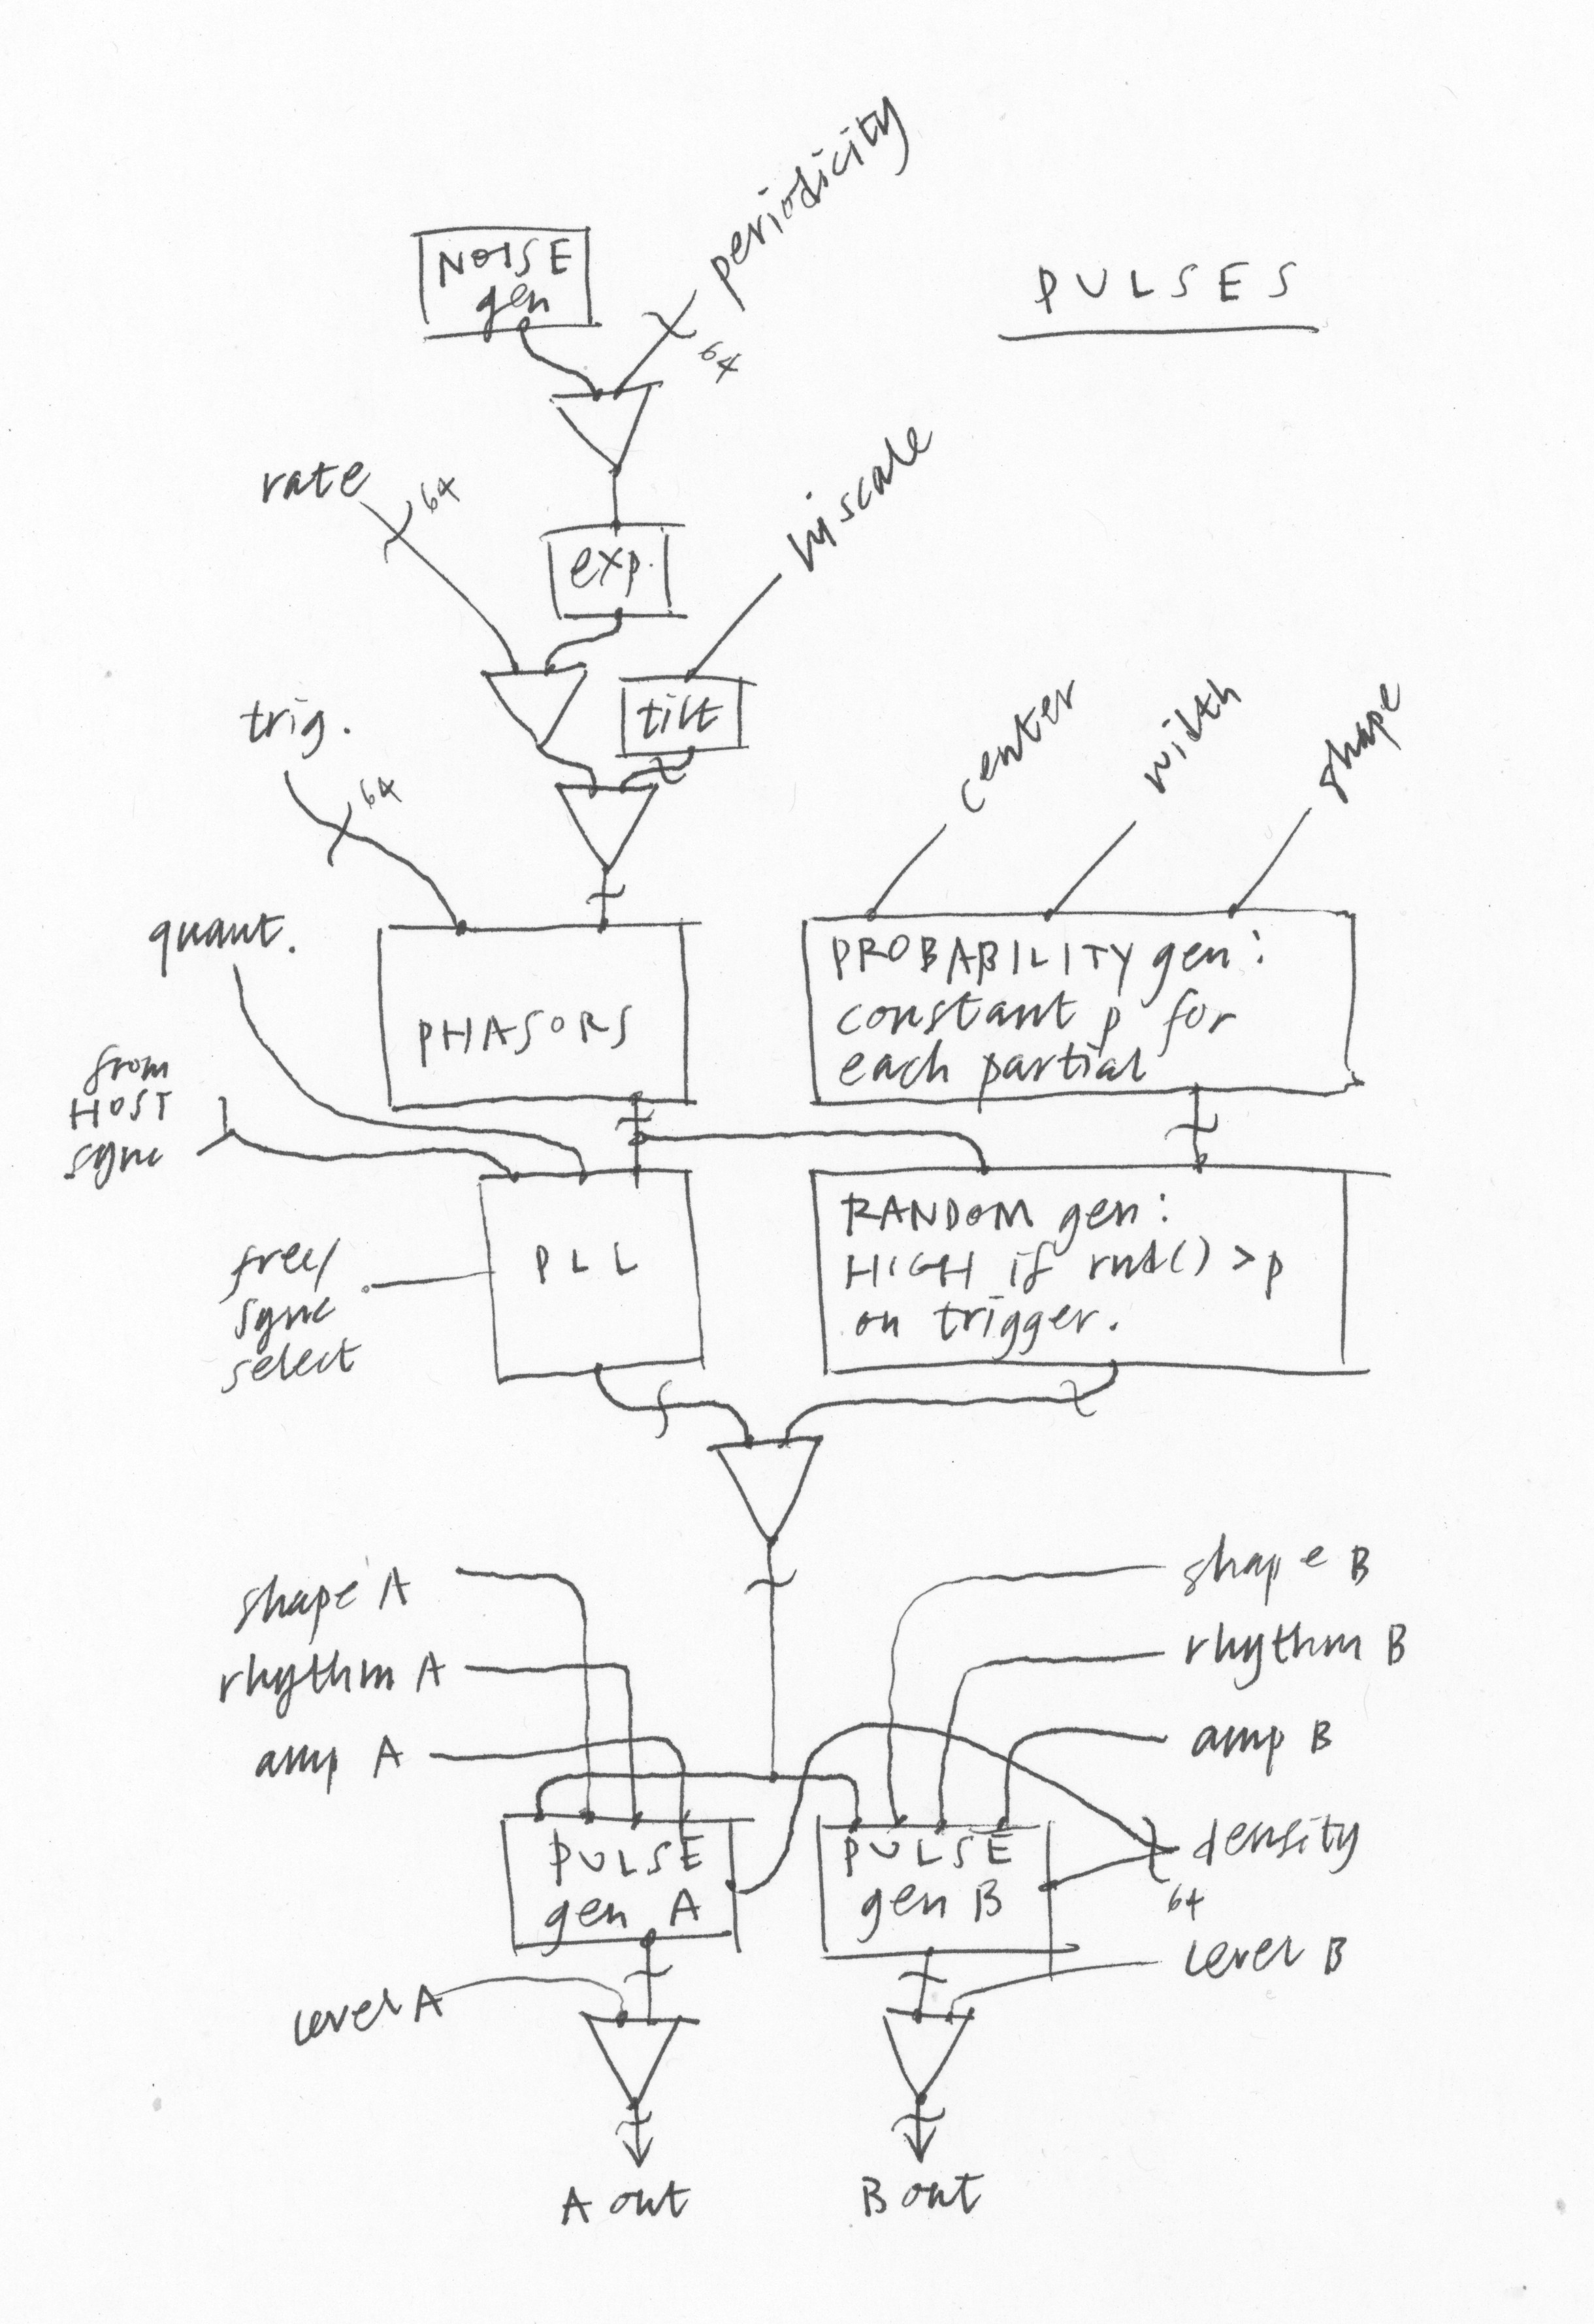 periodicity
NOISE
gen
PULSES
64
hi scale
rate
64
exp.
trig.
tilt
64
center
width
shape
quant.
PHASORS
PROBABILITY gen:
constant p for
each partial
from
HOST
sync
RANDOM gen:
HIGH if rnd() > p
on trigger.
PLL
free/
sync
select
shape A
shape B
rhythm A
rhythm B
amp A
amp B
PULSE
gen A
PULSE
gen B
density
64
level A
level B
A out
B out